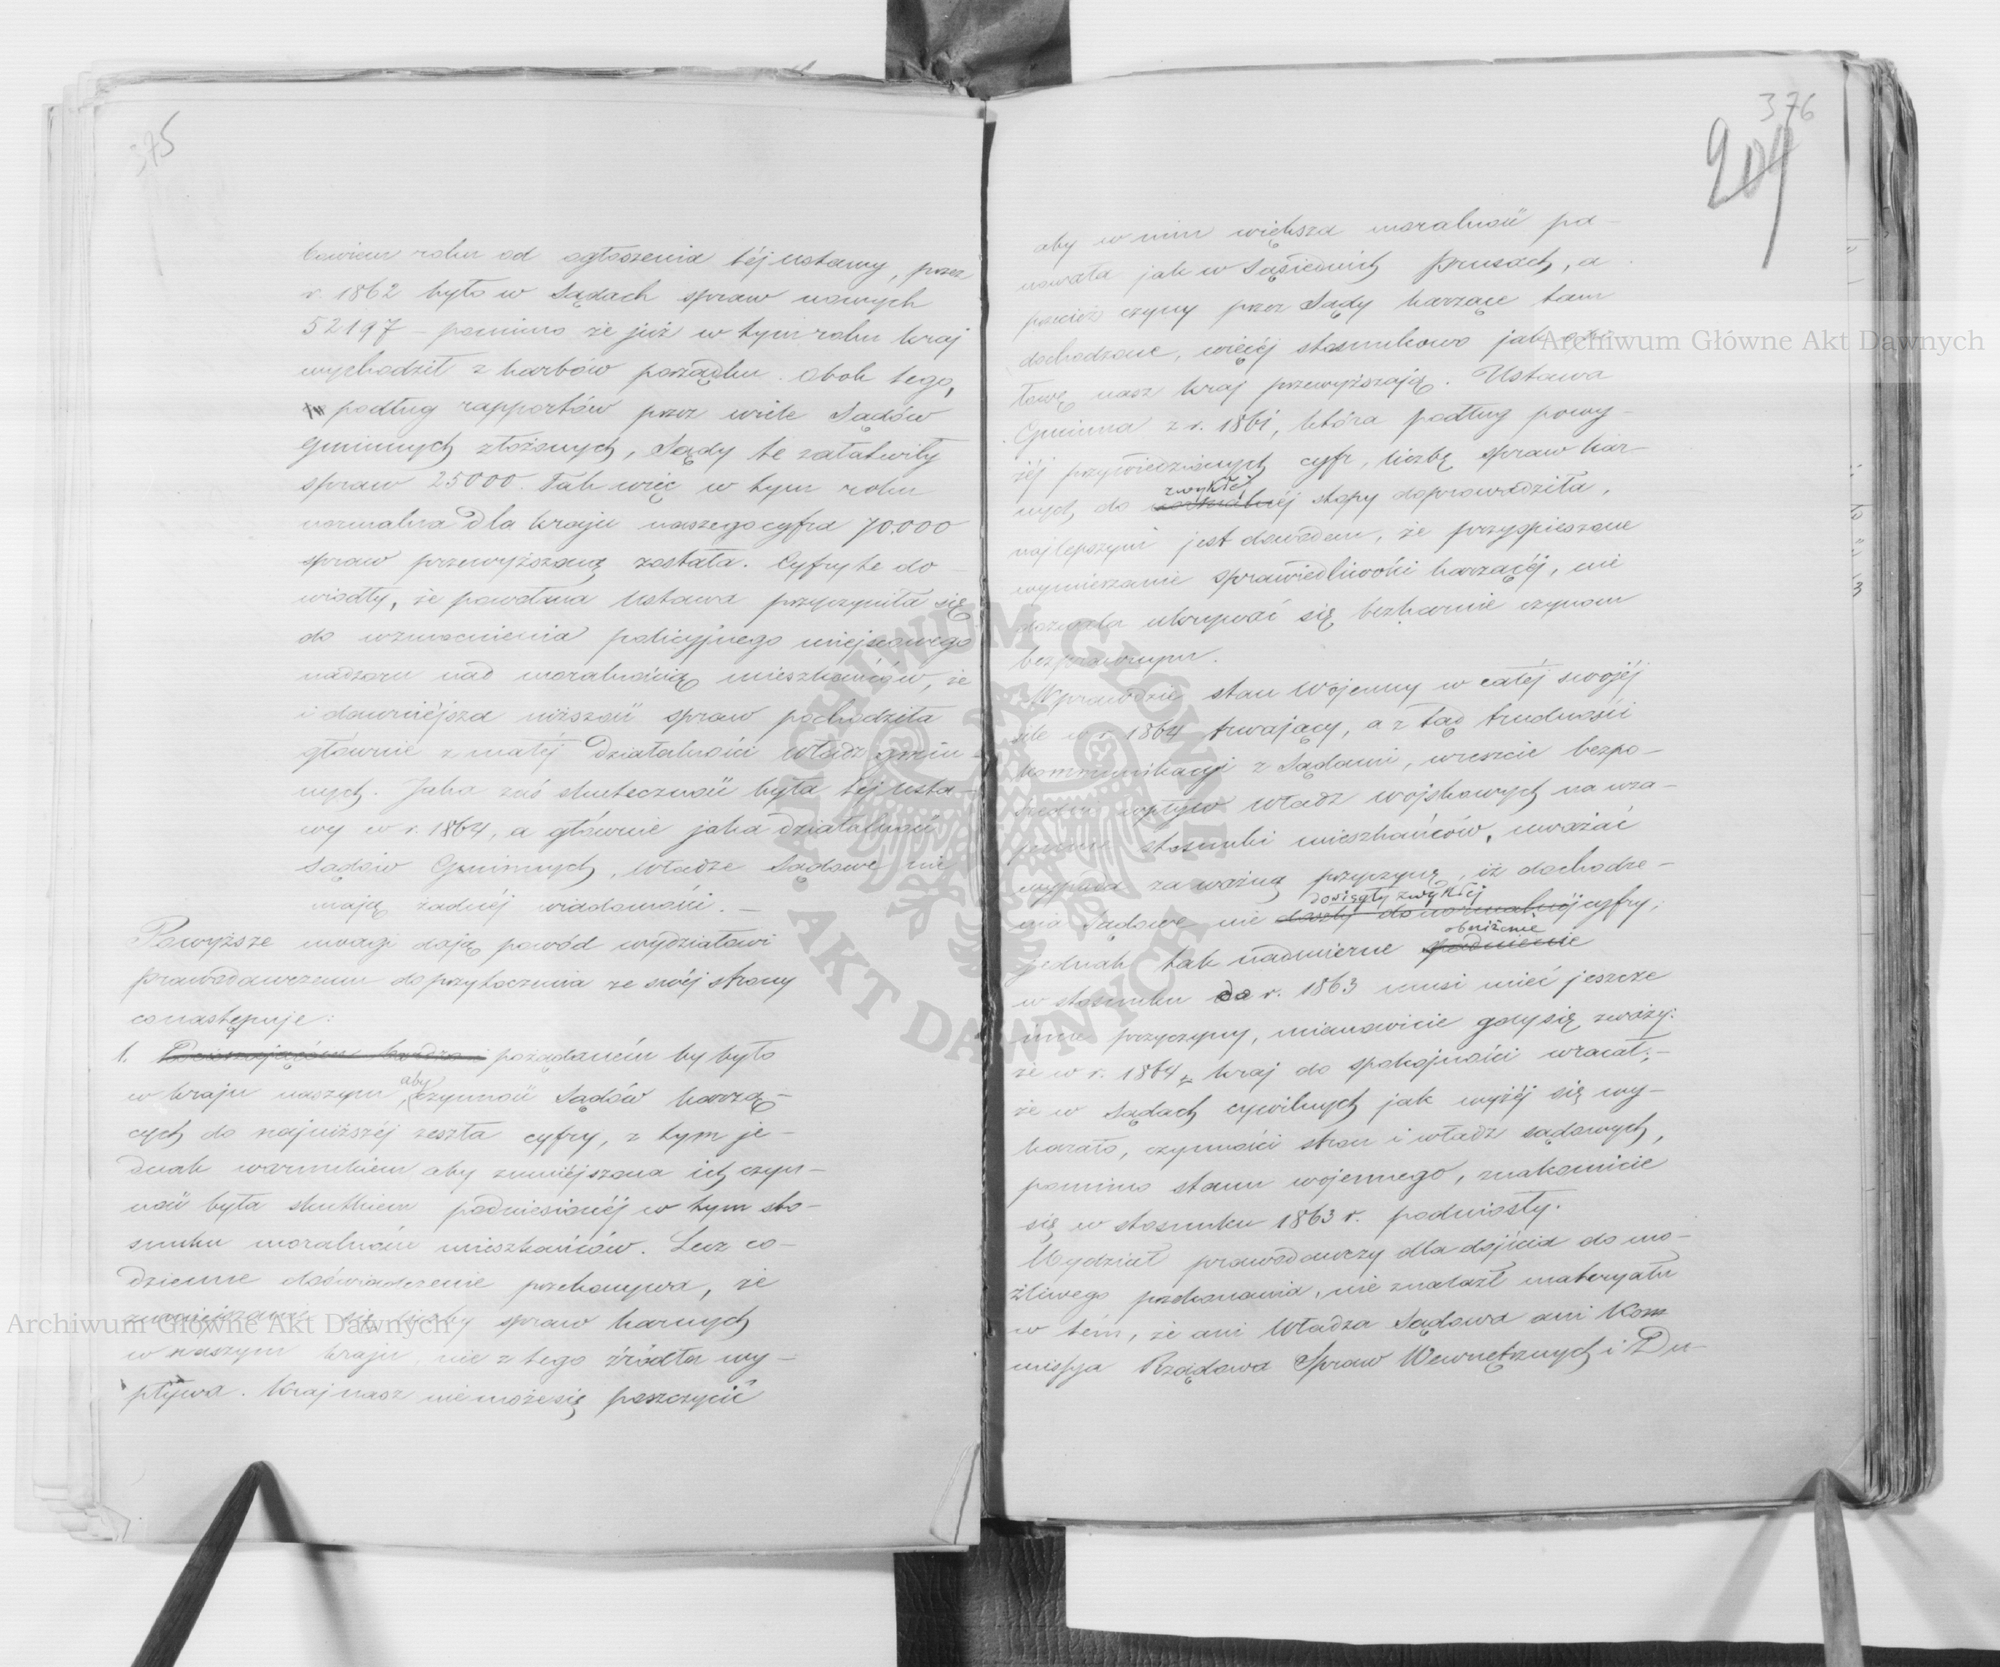 375
bowiem roku od ogłoszenia téj ustawy, przez
r. 1862 było w Sądach spraw nowych
52197 – pomimo że już w tym roku kraj
wychodził z karbów porządku. Obok tego,
podług rapportów przez wiele Sądów
Gminnych złożonych, Sądy te załatwiły
spraw 25000. Tak więc w tym roku
normalna dla kraju naszego cyfra 70.000
spraw przewyższoną została. Cyfry te do-
wiodły, że powołana Ustawa przyczyniła się
do wzmocnienia policyjnego miejscowego
nadzoru nad moralnością mieszkańców, że
i dawniéjsza niższość spraw pochodziła
głównie z małéj działalności Władz gmin-
nych. Jaka zaś skuteczność była téj usta-
wy w r. 1864, a głównie jaka działalność
Sądów Gminnych, Władze Sądowe nie
mają żadnéj wiadomości. –
Powyższe uwagi dają powód wydziałowi
prawodawczemu do przytoczenia ze swéj strony
co następuje:
1. pożądaném by było
w kraju naszym, aby czynność Sądów karzą-
cych do najniższéj zeszła cyfry, z tym je-
dnak warunkiem aby zmniejszona ich czyn-
ność była skutkiem podniesionéj w tym sto-
sunku moralności mieszkańców. Lecz co-
dzienne doświadczenie przekonywa, że
zmniejszenie się liczby spraw karnych
w naszym kraju, nie z tego źródła wy-
pływa. Kraj nasz nie może się poszczycić
376
209
aby w nim większa moralność pa-
nowała jak w Sąsiednich Prusach, a
przecież czyny przez Sądy karzące tam
dochodzone, więcéj stosunkowo jak o po-
łowę nasz kraj przewyższają. Ustawa
Gminna z r. 1861, która podług powy-
żéj przywiedzionych cyfr, liczbę spraw kar-
nych do zwykłéj stopy doprowadziła,
najlepszym jest dowodem, że przyspieszone
wymierzanie sprawiedliwości karzącéj, nie
dozwala ukrywać się bezkarnie czynom
bezprawnym.
Wprawdzie stan Wojenny w całéj swojéj
sile w r. 1864 trwający, a z tąd trudności
kommunikacyi z Sądami, wreszcie bezpo-
średni wpływ Władz wojskowych na wza-
jemne stosunki mieszkańców, uważać
wypada za ważną przyczynę, iż dochodze-
nia Sądowe nie dosięgły zwykłéj cyfry;
jednak tak nadmierne obniżenie
w stosunku do r. 1863 musi mieć jeszcze
inne przyczyny, mianowicie gdy się zważy:
że w r. 1864 kraj do spokojności wracał;–
że w Sądach cywilnych jak wyżéj się wy-
kazało, czynności stron i władz sądowych,
pomimo stanu wojennego, znakomicie
się w stosunku 1863 r. podniosły.
Wydział prawodawczy dla dojścia do mo-
żliwego przekonania, nie znalazł materyału
w tém, że ani Władza Sądowa ani Kom
missja Rządowa Spraw Wewnętrznych i Du-
Archiwum Główne Akt Dawnych
Archiwum Główne Akt Dawnych
ARCHIWUM GŁÓWNE AKT DAWNYCH